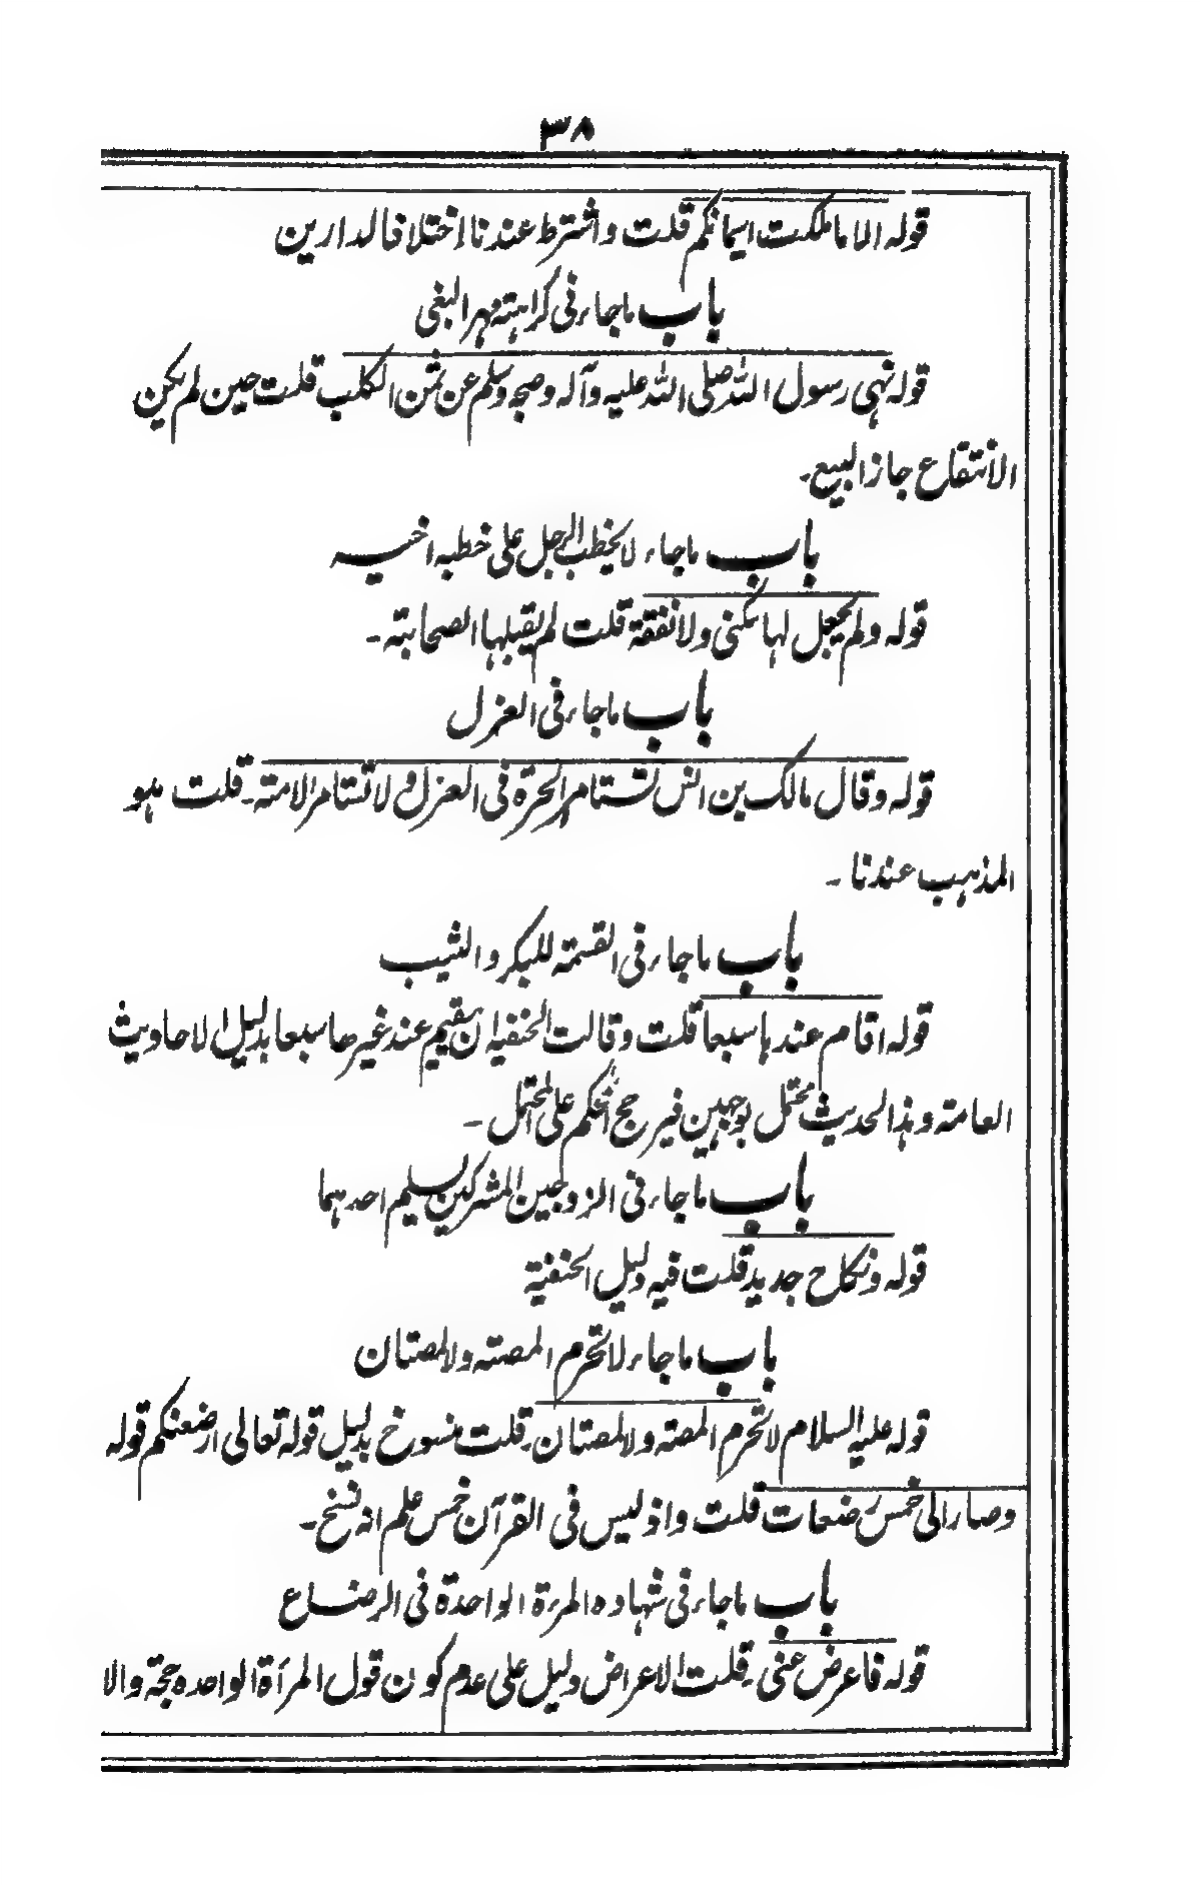 ٣٨
قوله الا ما ملکت ایمانکم قلت واشترط عندنا اختلاف الدارین
باب ماجاء فی کراهیته مهر البغی
قوله نهی رسول الله صلی الله علیه وآله وصحبه وسلم عن ثمن الکلب قلت حین لم یکن
الانتفاع جاز البیع۔
باب ماجاء لا یخطب الرجل علی خطبه اخیه
قوله ولم یجعل لها سکنی ولا نفقة قلت لم یقبلها الصحابته۔
باب ماجاء فی العزل
قوله وقال مالک بن انس تستامر الحرة فی العزل ولا تستامر الامته۔ قلت هو
المذهب عندنا۔
باب ماجاء فی القسمته للبکر والثیب
قوله اقام عندها سبعا قلت وقالت الحنفیه ان یقیم عند غیرها سبعا بدلیل الاحادیث
العامته وهذا الحدیث محتمل بوجهین فیرجح المحکم علی المحتمل۔
باب ماجاء فی الزوجین المشرکین یسلم احدهما
قوله ونکاح جدید قلت فیه دلیل الحنفیة
باب ماجاء لا تحرم المصته ولا المصتان
قوله علیه السلام لا تحرم المصته ولا المصتان۔ قلت منسوخ بدلیل قوله تعالی ارضعنکم قوله
وصار الی خمس رضعات قلت واذ لیس فی القرآن خمس علم انه نسخ۔
باب ماجاء فی شهاده المرءة الواحدة فی الرضاع
قوله فاعرض عنی۔ قلت الاعراض دلیل علی عدم کون قول المرأة الواحده حجة والا